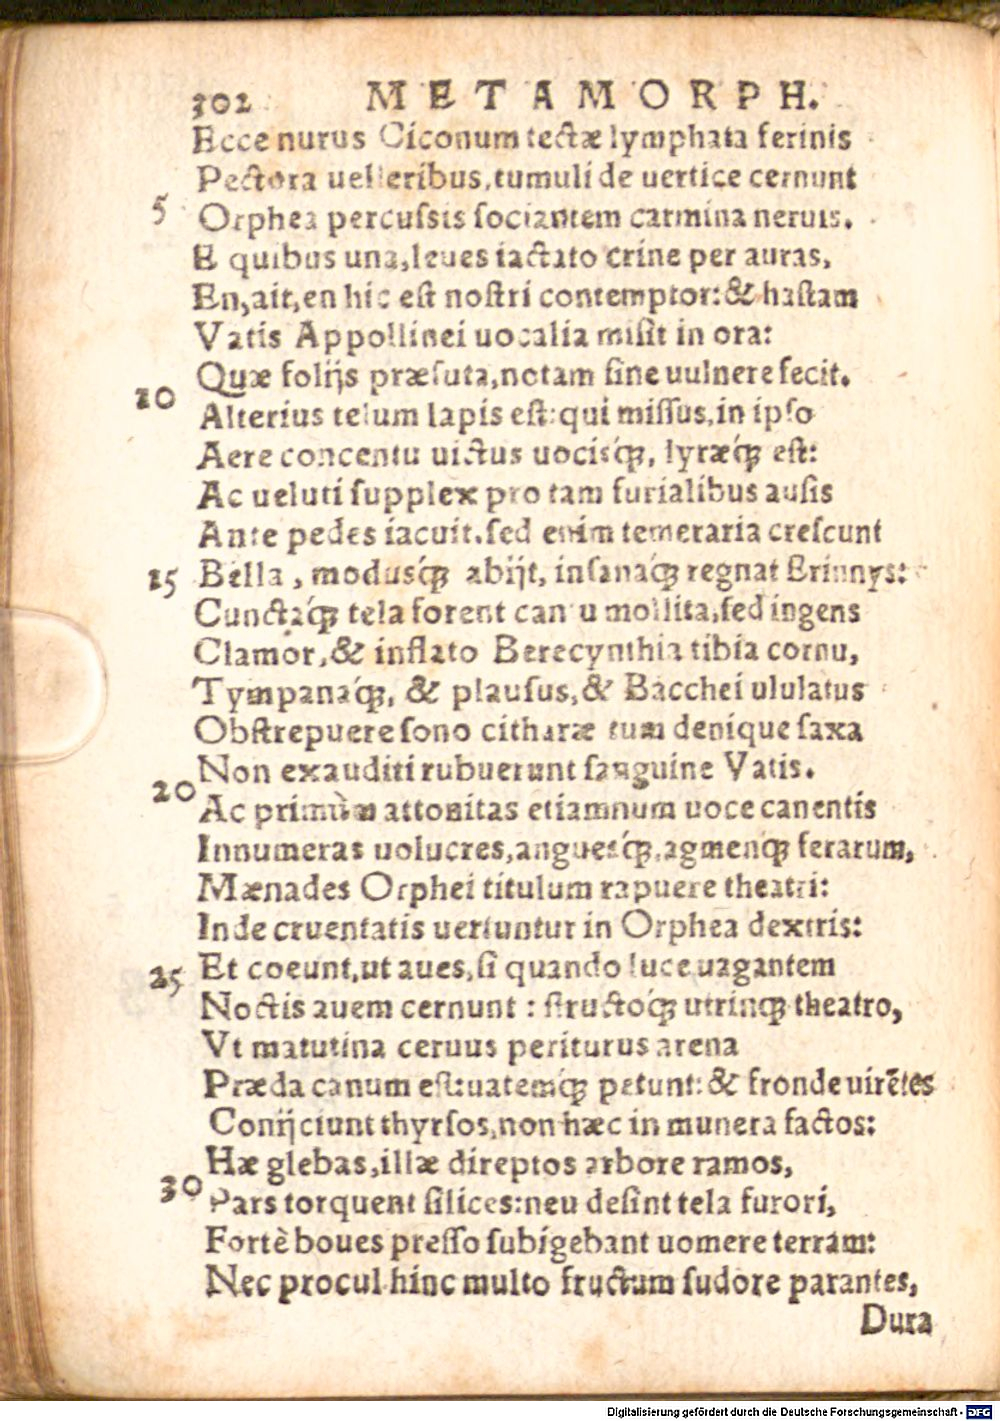 302 METAMORPH.
Ecce nurus Ciconum tectæ lymphata ferinis
Pectora uelleribus, tumuli de uertice cernunt
5 Orphea percussis sociantem carmina neruis.
E quibus una, leues iactato crine per auras,
En, ait, en hic est nostri contemptor: & hastam
Vatis Appollinei uocalia misit in ora:
Quæ folijs præsuta, notam sine uulnere fecit.
10 Alterius telum lapis est: qui missus, in ipso
Aere concentu uictus uocisq́;, lyræq́; est:
Ac ueluti supplex pro tam furialibus ausis
Ante pedes iacuit. sed enim temeraria crescunt
15 Bella, modusq́; abijt, insanaq́; regnat Erinnys:
Cunctaq́; tela forent cantu mollita, sed ingens
Clamor, & inflato Berecynthia tibia cornu,
Tympanaq́;, & plausus, & Bacchei ululatus
Obstrepuere sono citharæ tum denique saxa
Non exauditi rubuerunt sanguine Vatis.
20 Ac primùm attonitas etiamnum uoce canentis
Innumeras uolucres, anguesq́;, agmenq; ferarum,
Mænades Orphei titulum rapuere theatri:
Inde cruentatis uertuntur in Orphea dextris:
25 Et coeunt, ut aues, si quando luce uagantem
Noctis auem cernunt: structoq́; utrinq; theatro,
Vt matutina ceruus periturus arena
Præda canum est: uatemq́; petunt: & fronde uirẽtes
Conijciunt thyrsos, non hæc in munera factos:
Hæ glebas, illæ direptos arbore ramos,
30 Pars torquent silices: neu desint tela furori,
Fortè boues presso subigebant uomere terram:
Nec procul hinc multo fructum sudore parantes,
Dura
Digitalisierung gefördert durch die Deutsche Forschungsgemeinschaft - DFG